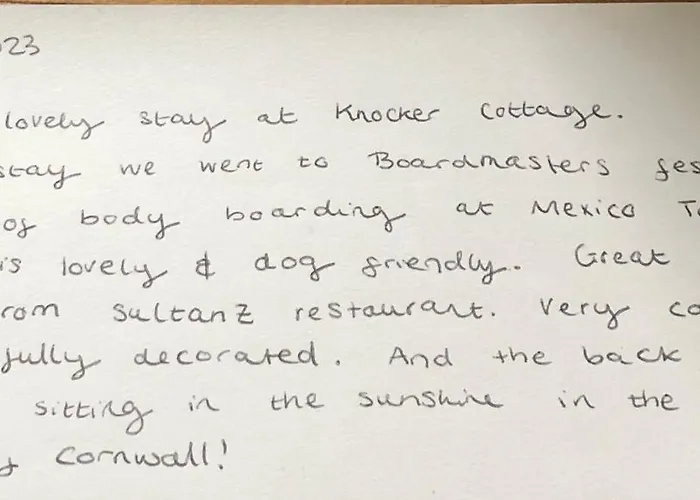 023
lovely stay at Knocker Cottage.
stay we went to Boardmasters fes
of body boarding at Mexico T
is lovely & dog friendly. Great
rom SultanZ restaurant. Very co
fully decorated. And the back
sitting in the sunshine in the
Cornwall!